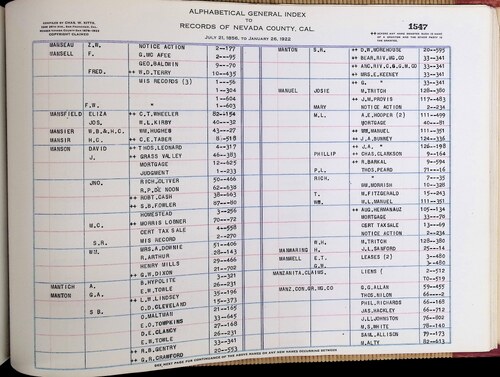 ALPHABETICAL GENERAL INDEX
TO
RECORDS OF NEVADA COUNTY, CAL.
JULY 21, 1856, TO JANUARY 28, 1922
COPYRIGHT CLAIMED
1547
MANSEAU Z.W. NOTICE ACTION 2-177
MANSELL F. G. MC AFEE 2-95
GEO. BALDWIN 9-70
FRED. ++ W.D. TERRY 10-435
MIS RECORDS (3) 1-56
" 1-304
" 1-604
F.W. " 1-603
MANSFIELD ELIZA ++ C.T. WHEELER 82-154
JOS. W.L. KIRBY 40-32
MANSIER W.B.& H.C. WM. HUGHES 43-27
MANSIR H.C. ++ C.E. TABER 81-518
MANSON DAVID ++ THOS. LEONARD 4-317
J. ++ GRASS VALLEY 46-383
MORTGAGE 12-625
JUDGMENT 1-233
JNO. RICH. OLIVER 50-466
R.P. DE NOON 62-638
++ ROBT. CASH 38-663
++ S.B. FOWLER 87-80
HOMESTEAD 3-256
M.C. ++ MORRIS LOBNER 70-72
CERT TAX SALE 4-558
S.R. MIS RECORD 2-270
WM. MRS. A. DOWNIE 51-406
R. ARTHUR 28-143
HENRY MILLS 29-466
++ G.W. DIXON 21-702
MANTICH A. B. HYPOLITE 3-321
MANTON G.A. E.W. TOWLE 26-231
++ L.W. LINDSEY 35-196
S B. C.D. CLEVELAND 15-373
O. MALTMAN 21-165
E.O. TOMPKINS 33-645
D.E. CLANCY 27-168
E.W. TOWLE 26-231
++ R.B. GENTRY 33-341
++ G.R. CRAWFORD 20-553
MANTON S.R. ++ D.W. MOREHOUSE 20-595
++ BEAR, RIV, MG. CO 33-341
++ 33-341
++ MRS. E. KEENEY 33-341
++ G. " 33-341
MANUEL JOSIE M. TRITCH 128-380
++ J.M. PROVIS 117-483
MARY NOTICE ACTION 2-234
M.L. A.E. HOOPER (2) 111-409
MORTGAGE 40-81
++ WM. MANUEL 111-351
++ J.A. BUNNEY 124-336
++ J.A. " 126-198
PHILLIP ++ CHAS. CLARKSON 9-164
++ R. BARKAL 9-594
P.L. THOS. PEARD 71-16
RICH. " 7-35
WM. MORRISH 10-328
T. M. FITZGERALD 15-243
WM. M.L. MANUEL 111-351
++ AUG. HERMANAUZ 105-134
MORTGAGE 33-70
CERT TAX SALE 13-69
NOTICE ACTION 2-234
W.H. M. TRITCH 128-380
MANMARING H. J.L. SANFORD 25-14
MANWELL E.T. LEASES (2) 3-480
G.W. " 3-480
MANZANITA, CLAIMS, LIENS 2-512
" 66-519
MANZ, CON, GR, MG, CO G.G. ALLAN 59-455
THOS. NILON 66-2
PHIL. RICHARDS 66-168
JAS. HACKLEY 66-712
J.L. JOHNSTON 76-802
M.S. WHITE 78-140
SAML. ALLISON 79-173
M. ALTY 82-613
SEE NEXT PAGE FOR CONTINUANCE OF THE ABOVE NAMES OR ANY NEW NAMES OCCURRING BETWEEN